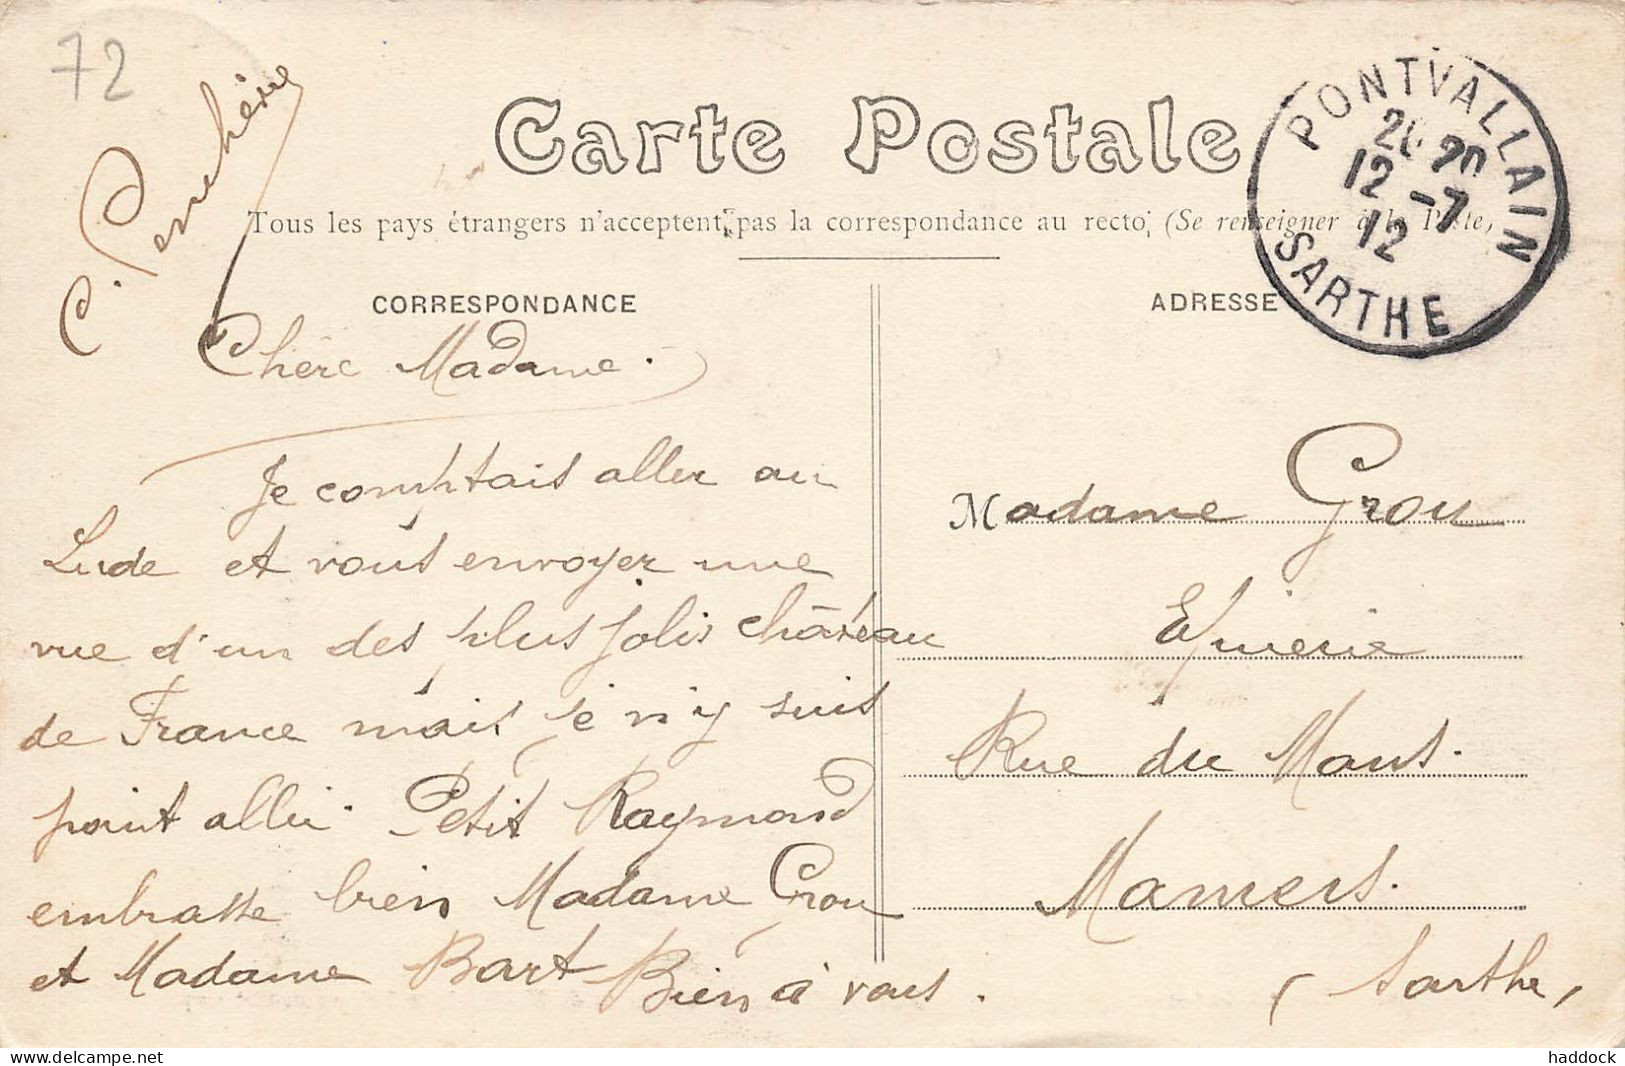 72
Carte Postale
Tous les pays étrangers n'acceptent pas la correspondance au recto (Se renseigner à la Poste)
PONTVALLAIN
12 -7
12
SARTHE
CORRESPONDANCE
Chère Madame.
Je comptais aller au
Lude et vous envoyer une
vue d'un des plus jolis château
de France mais je n'y suis
point allé. Petit Raymond
embrasse bien Madame Grou
et Madame Bart Bien à vous.
C.
ADRESSE
Madame Grou
Epicerie
Rue du Mans.
Mamers.
(Sarthe)
delcampe.net
haddock